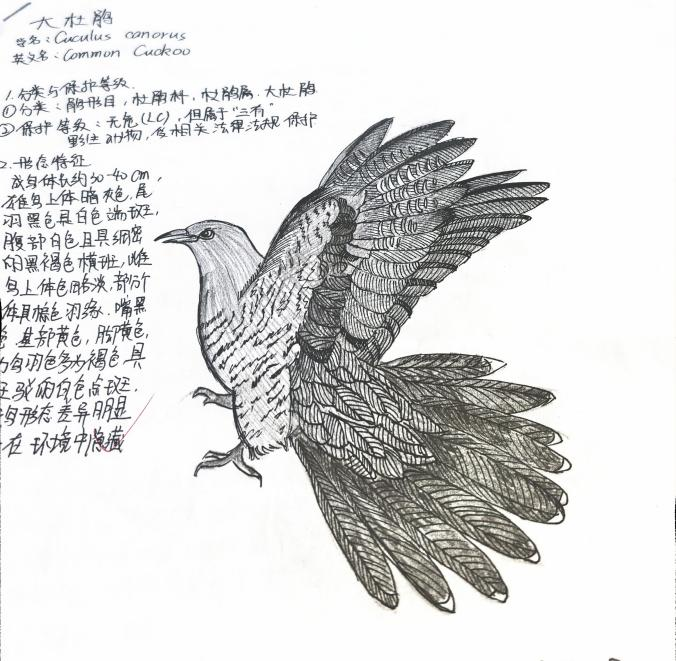 大杜鹃
学名：Cuculus canorus
英文名：Common Cuckoo
1.分类与保护等级.
①分类：鹃形目，杜鹃科，杜鹃属.大杜鹃
②保护等级：无危(LC)，但属于"三有"
野生动物，受相关法律法规保护
2.形态特征
成鸟体长约30-40cm，
雄鸟上体暗灰色，尾
羽黑色具白色端斑，
腹部白色且具细密
的黑褐色横斑，雌
鸟上体色略淡，部分
体具棕色羽缘.嘴黑
基部黄色，脚黄色，
幼鸟羽色多为褐色，具
斑驳的白色点斑.
鸟形态差异明显
在环境中隐藏